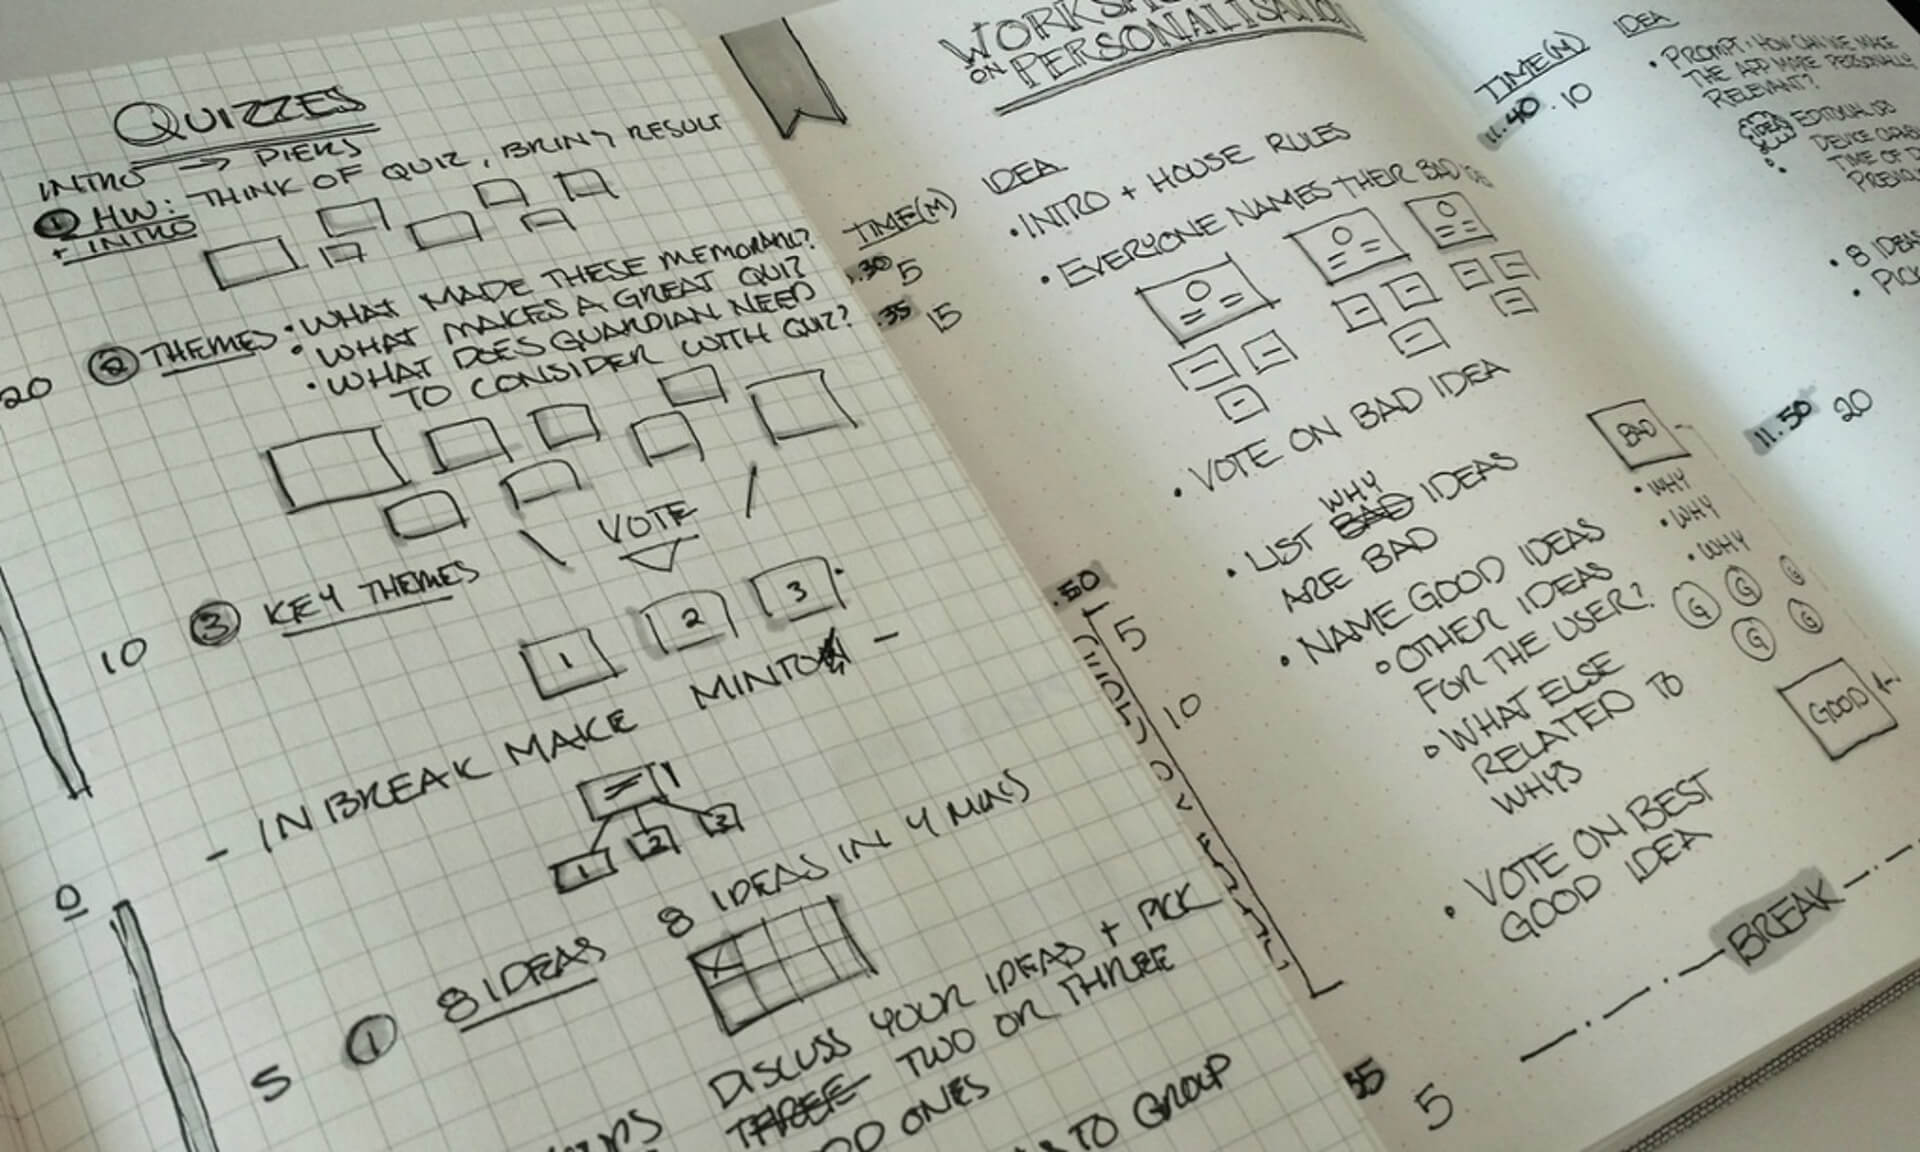 QUIZZES
INTRO → PIERS
1 HW: THINK OF QUIZ, BRING RESULT
+ INTRO
20 2 THEMES • WHAT MADE THESE MEMORABLE?
• WHAT MAKES A GREAT QUIZ
• WHAT DOES GUARDIAN NEED
TO CONSIDER WITH QUIZ?
VOTE
10 3 KEY THEMES
1 2 3
- IN BREAK MAKE MINTO -
1
1 2 3
0
5 1 8 IDEAS 8 IDEAS IN 4 MINS
DISCUSS YOUR IDEAS + PICK
THREE TWO OR THREE
ONES
TO GROUP
WORKSHOP
ON PERSONALISATION
TIME(M) IDEA
.30 5 • INTRO + HOUSE RULES
.35 15 • EVERYONE NAMES THEIR BAD
• VOTE ON BAD IDEA
.50 5 • LIST WHY BAD IDEAS
ARE BAD
10 • NAME GOOD IDEAS
• OTHER IDEAS
FOR THE USER?
• WHAT ELSE
RELATED TO
WHYS
• VOTE ON BEST
GOOD IDEA
BAD
• WHY
• WHY
• WHY
G G G
G G
GOOD
BREAK
35 5
TIME(M) IDEA
11.40 . 10 • PROMPT: HOW CAN WE MAKE
THE APP MORE PERSONALLY
RELEVANT?
IDEA EDITORIAL
DEVICE
TIME OF
• 8 IDEAS
• PICK
11.50 20